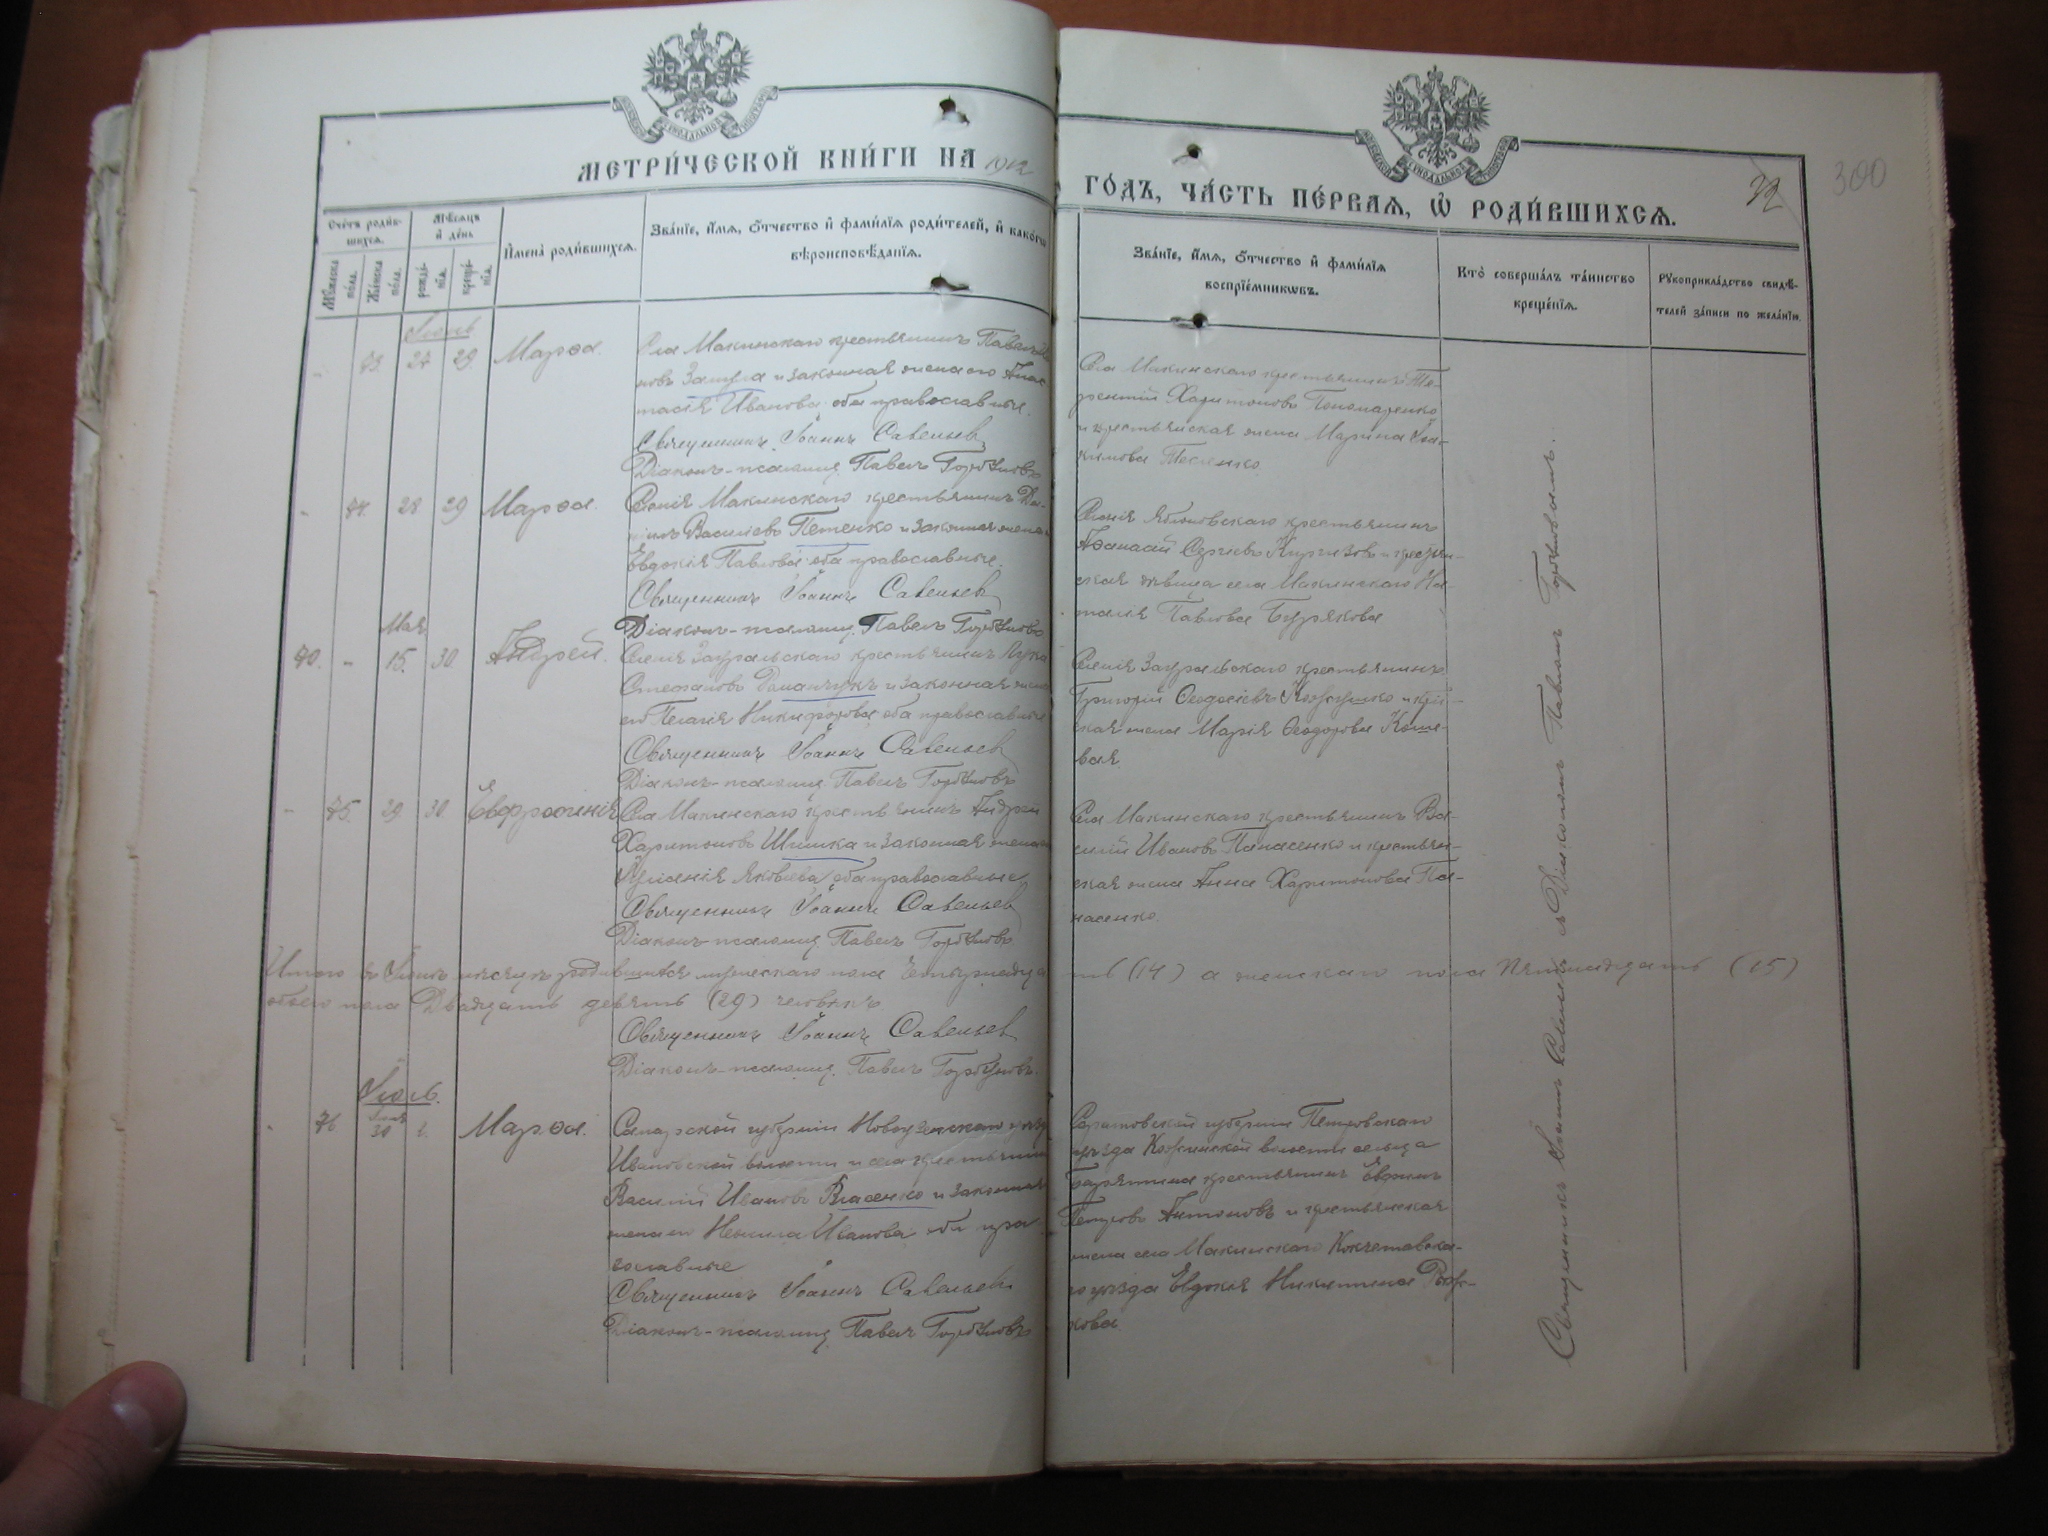 МЕТРИ́ЧЕСКОЙ КНИ́ГИ НА 1912
ГО́ДЪ, ЧА́СТЬ ПЕ́РВАЯ, Ѿ РОДИ́ВШИХСЯ.
32
300
Сче́тъ роди́в-
шихся.
Му́жеска по́ла.
Же́нска по́ла.
Мѣ́сяцъ
и де́нь
рожде́-
нїя.
креще́-
нїя.
И́мена роди́вшихся.
Зва́нїе, и́мя, о́тчество и фами́лїя роди́телей, и како́гѡ
вѣроисповѣ́данїя.
Зва́нїе, и́мя, о́тчество и фами́лїя
воспрїе́мникѡвъ.
Кто̀ соверша́лъ та́инство
креще́нїя.
Рꙋкоприкла́дство свидѣ́-
телей за́писи по жела́нїю.
Іюнь
- 73. 27 29. Марѳа.
Села Макинскаго крестьянинъ Павелъ
новъ Замула и законная жена его Анас-
тасія Иванова, оба православные.
Священникъ Іоаннъ Савельев
Діаконъ-псаломщ. Павелъ Горбуновъ
Села Макинскаго крестьянинъ Те-
рентій Харитоновъ Пономаренко
и крестьянская жена Марина Іоа-
кимова Тесленко
- 74. 28 29 Марѳа.
Селенія Макинскаго крестьянинъ
Василіевъ Петенко и законная жена
Евдокія Павлова оба православные.
Священникъ Іоаннъ Савельев
Діаконъ-псаломщ. Павелъ Горбуновъ
Селенія Яблоновскаго крестьянинъ
Аѳанасій Сергіевъ Киргизовъ и крестьян-
ская дѣвица села Макинскаго На-
талія Павлова Бурякова
Мая
70. - 15. 30. Андрей.
Селенія Зауральскаго крестьянинъ Лука
Стефановъ Романчукъ и законная жена
его Пелагія Никифорова оба православные
Священникъ Іоаннъ Савельев
Діаконъ-псаломщ. Павелъ Горбуновъ
Селенія Зауральскаго крестьянинъ
Григорій Ѳеодосіевъ и
ская жена Марія Ѳеодорова Коше-
вая
- 75. 29. 30. Евфросинія
Села Макинскаго крестьянинъ Андрей
Харитоновъ Шишка и законная жена
Ксенія Яковлева оба православные
Священникъ Іоаннъ Савельев
Діаконъ-псаломщ. Павелъ Горбуновъ
Села Макинскаго крестьянинъ Ва-
силій Ивановъ Панасенко и крестьян-
ская жена Анна Харитонова Па-
насенко.
Итого въ Іюнѣ мѣсяцѣ родившихся мужескаго пола Четырнадца
ть (14) а женскаго пола Пятнадцать (15)
обоего пола Двадцать девять (29) человѣкъ
Священникъ Іоаннъ Савельев
Діаконъ-псаломщ. Павелъ Горбуновъ.
Іюль.
- 76 Іюня 30 1. Марѳа.
Самарской губерніи Новоузенскаго уѣзда
Ивановской волости и села крестьянинъ
Василій Ивановъ Власенко и законная
жена его Ненила Иванова оба пра-
вославные
Священникъ Іоаннъ Савельев
Діаконъ-псаломщ. Павелъ Горбуновъ
Саратовской губерніи Петровскаго
уѣзда Кожинской волости сельца
крестьянинъ Евфимъ
Петровъ Антоновъ и крестьянская
жена села Макинскаго Кокчетавска-
го уѣзда Евдокія Никитина Рож-
кова
Священникъ Іоаннъ Савельевъ съ Діакономъ Павломъ Горбуновымъ.